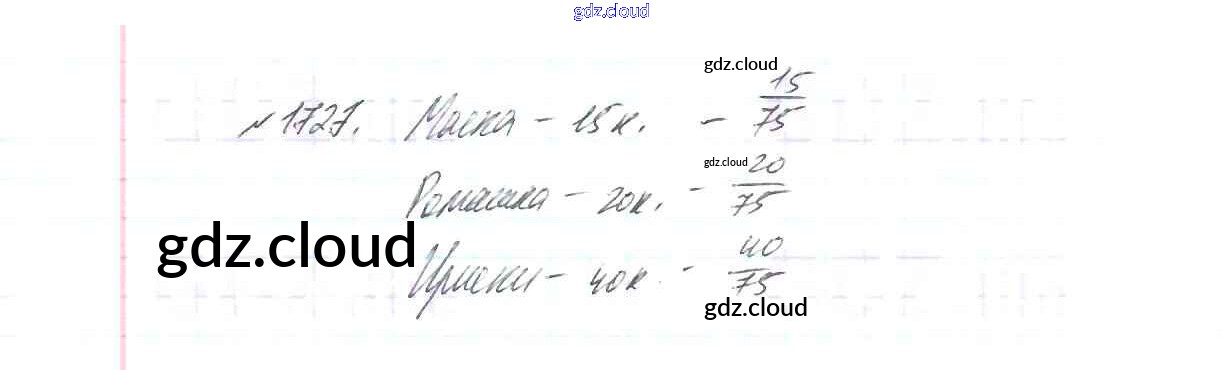 gdz.cloud
gdz.cloud
№1727. Маска - 15 к. - 15/75
gdz.cloud
Ромашка - 20к. - 20/75
gdz.cloud
Ириски - 40к. - 40/75
gdz.cloud